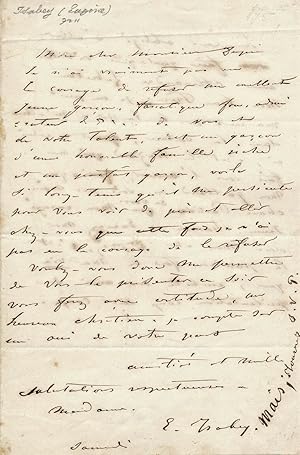 Isabey (Eugène)
Mon cher Monsieur
Je n'ai vraiment pas eu
le courage de refuser un excellent
jeune garçon, fanatique fou, admi
rateur &&& de vous et
de votre talent, c'est un garçon
d'une honorable famille riche
et un parfait garçon, voilà
si long-temps qu'il me persécute
pour vous voir de près et aller
chez-vous que cette fois je n'ai
pas eu le courage de le refuser
Voulez-vous donc me permettre
de vous le présenter ce soir
vous ferez avec certitude, un
heureux chrétien. je compte sur
un oui de votre part
amitiés et mille
salutations respectueuses à
Madame.
E. Isabey.
Samedi
Mais,